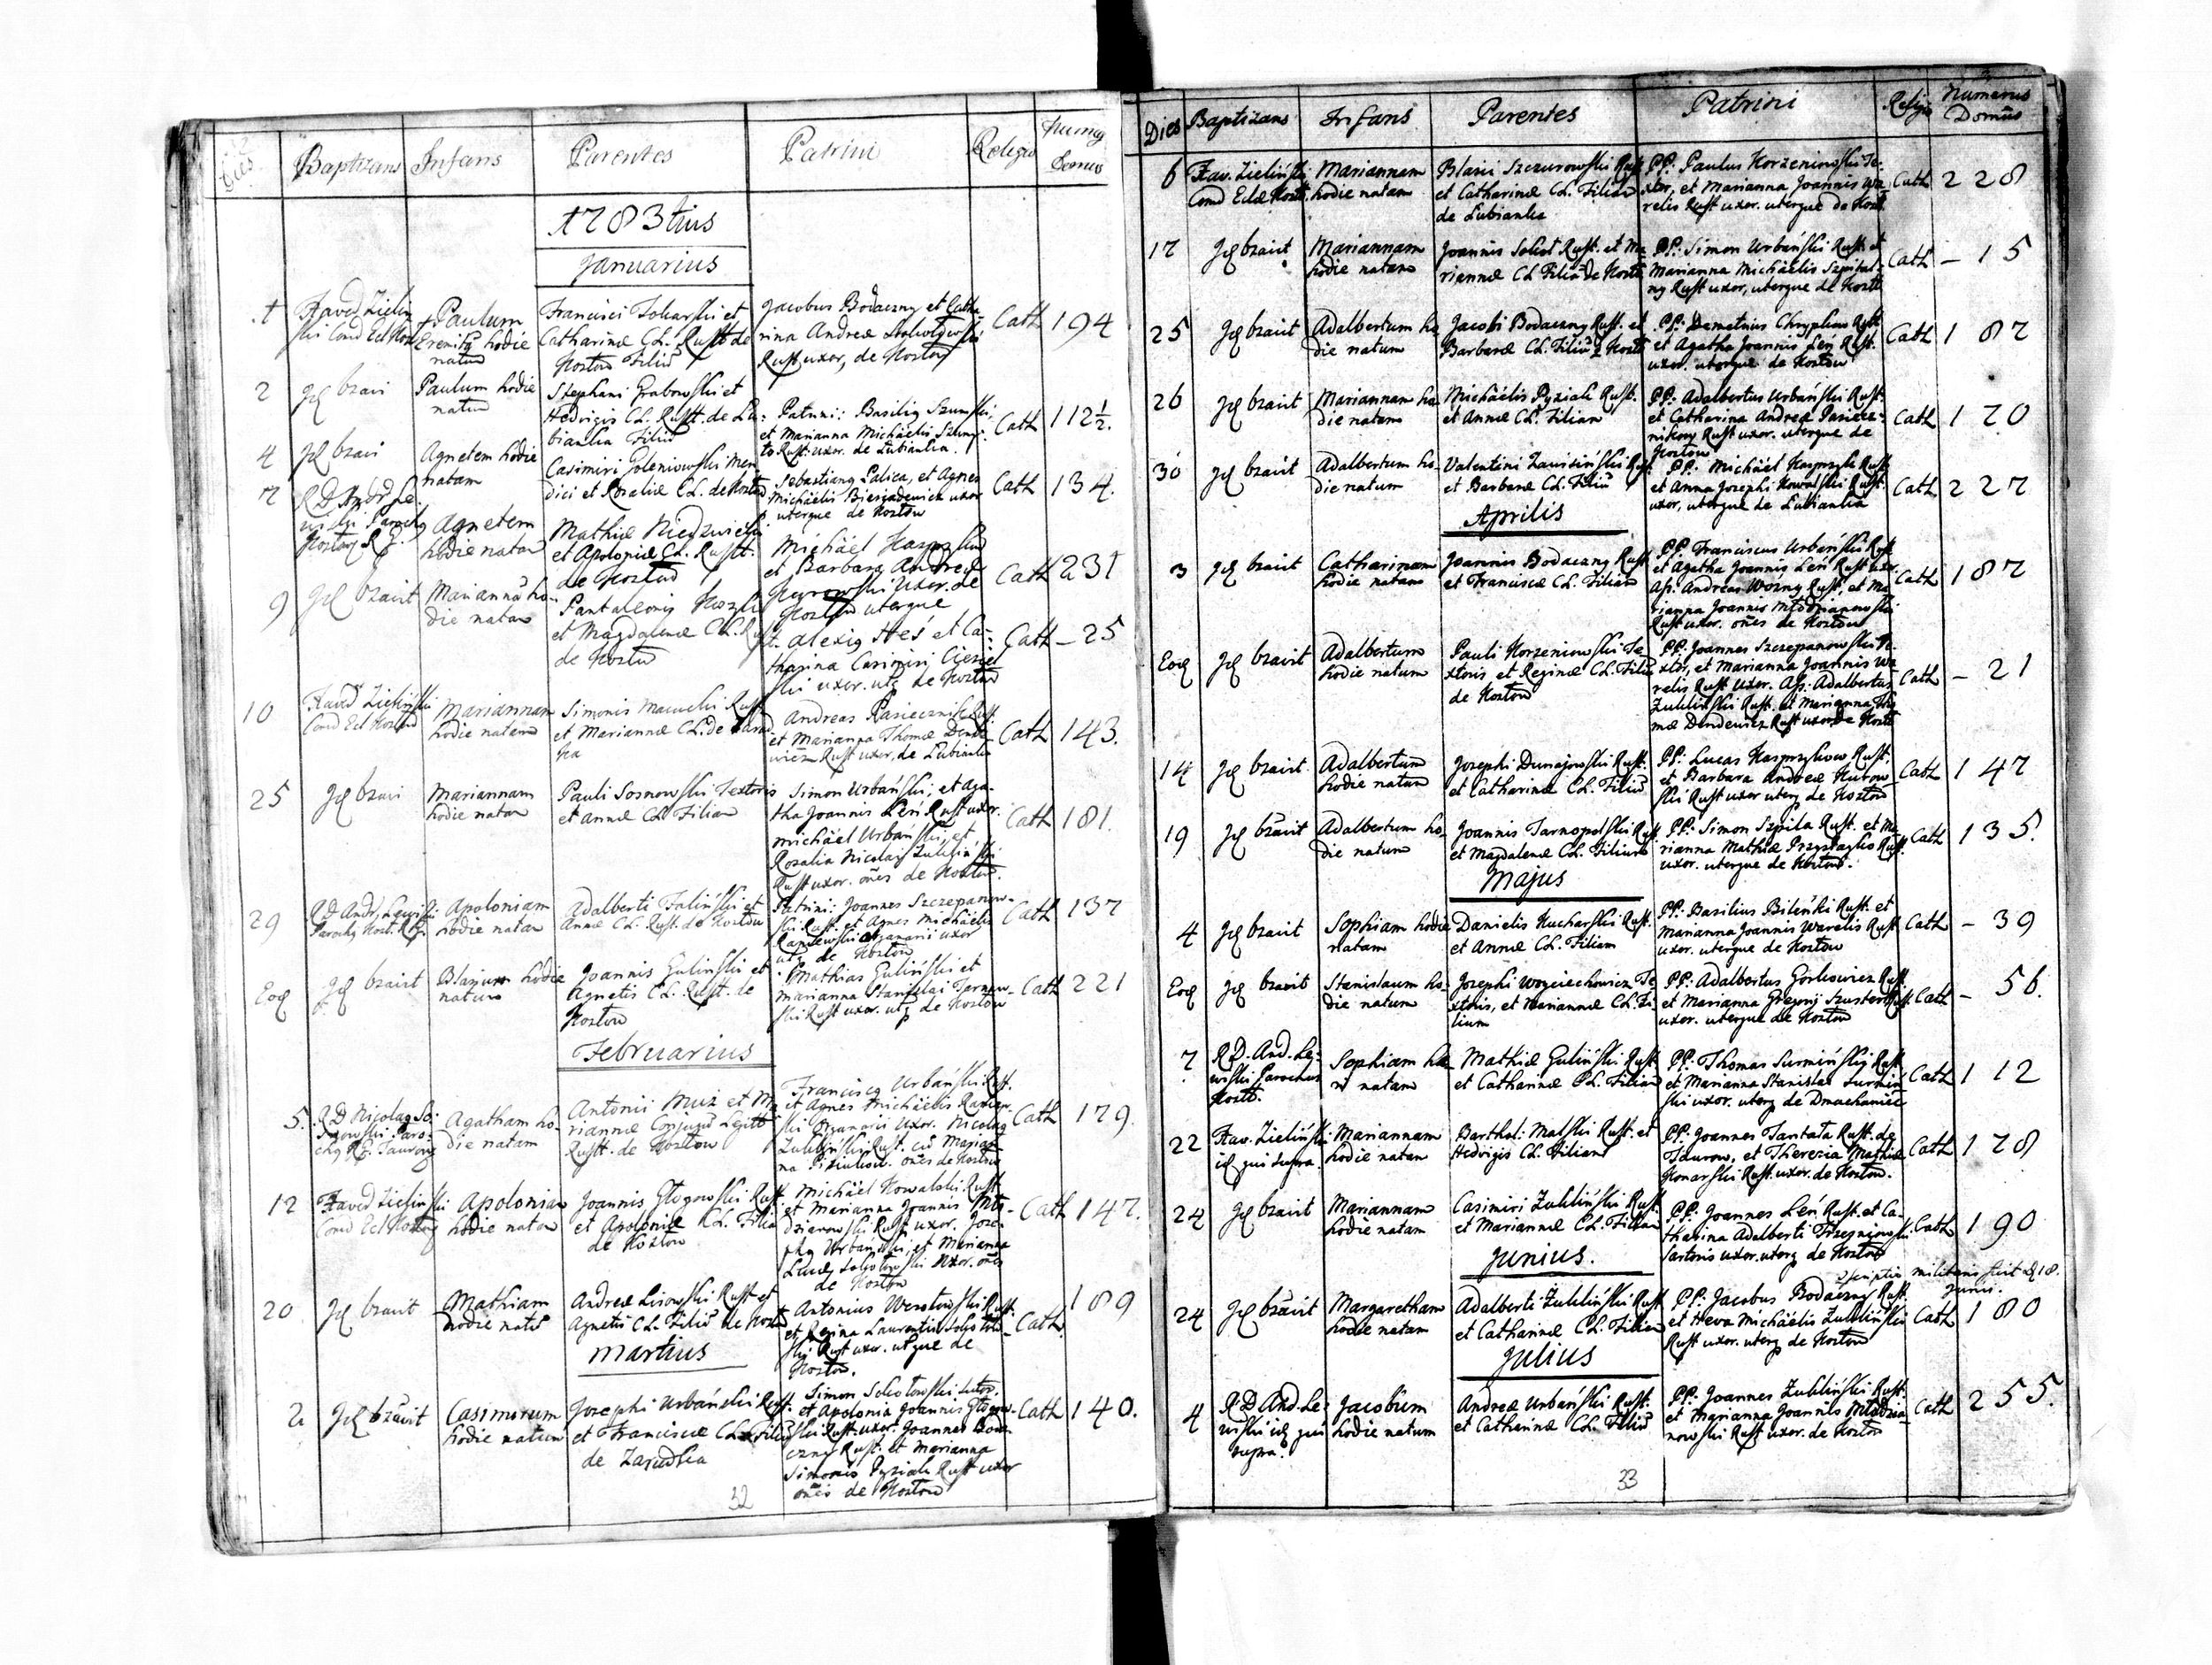 Dies Baptizans Infans Parentes Patrini Religio Numerus Domus
1783tius
Januarius
1 Xaved Zieliń
ski Comd Ecl Kozł
Paulum
Eremitā hodie
natum
Francisci Sokarski et
Catharinæ CL. Rustt de
Kozłow Filiū
Jacobus Bodaczny et Catha-
rina Andreæ
Rust uxor, de Kozłow
Cath 194
2 Jdē bzavi
Paulum hodie
natum
Stephani Grabowski et
Hedvigis CL. Rustt. de Lu:
bianka Filiū
Patrini: Basiliq Szumski
et Marianna Michäelis
Rust: uxor. de Lubianka.
Cath 112½.
4 Jdē bzavi
Agnetem hodie
natam
Casimiri Goleniowski Men
dici et Rosaliæ CL. de Kozłow
Sebastianq Palica, et Agnes
Michäelis Biesiadewicz uxor
uterque de Kozłow
Cath 134.
7 R D Andr Le:
wiski Parochq
Kozłovq R. L.
Agnetem
hodie natam
Mathiæ Niedzwiecki
et Apoloniæ CL. Rustt.
de Kozłow
Michäel Kasprzków
et Barbara Andreæ
uxor. de
Kozłow uterque
Cath 231
9 Jdē bzavit
Mariannā ho-
die natam
Pantaleonis
et Magdalenæ CL. Rust
de Kozłow
Alexiq Heś et Ca-
tharina Casimiri Ciesiel
ski uxor. utq de Kozłow
Cath - 25
10 Xaved Zieliński
Comd Ecl Kozłow
Mariannam
hodie natam
Simonis Maćucki Rust
et Mariannæ CL. de
Andreas Pasiecznik Rust.
et Marianna Thomæ Dende
wicz Rust uxor, de Lubianka
Cath 143.
25 Jdē bzavi
Mariannam
hodie natam
Pauli Sosnowski Textoris
et Annæ CL Filiam
Simon Urbański, et Aga-
tha Joannis Leń Rust uxor.
Michäel Urbański, et
Rosalia Nicolai Zukliński
Rust uxor. oēs de Kozłow.
Cath 181.
29 R D Andr, Lewiski
Parochq Kozł. R L.
Apoloniam
hodie natam
Adalberti Faliński et
Annæ CL. Rust. de Kozłow
Patrini: Joannes Szczepanow-
ski Rust. et Agnes Michäelis
Raniewski Organarii uxor
utq de Kozłow
Cath 137
Eoē Jdē bzavit
Blasium hodie
natum
Joannis Guliński et
Agnetis CL. Rustt. de
Kozłow
Mathias Guliński et
Marianna Stanislai Tarnow-
ski Rust uxor. utq de Kozłow
Cath 221
Februarius
5. R D Nicolaq So:
Paro-
chq RL. Taurovq
Agatham ho-
die natam
Antonii Muz et Ma
riannæ Conjugū Legitt
Rustt. de Kozłow
Franciscq Urbański Rust.
et Agnes Michäelis Raniew
ski Organarii Uxor. Nicolaq
Zukliński Rust. cū Marian
na oēs de Kozłow
Cath 179.
12 Xaved Zieliński
Comd Ecl Kozłovq
Apoloniam
hodie natam
Joannis Głogowski Rust
et Apoloniæ CL. Filia
de Kozłow
Michäel Kowalski Rust
et Marianna Joannis Mło-
dzianowski Rust uxor. Jose-
phq Urbański, et Marianna
Lucæ uxor. oēs
de Kozłow
Cath 147.
20 Jdē bzavit
Mathiam
hodie natū
Andreæ Lisowski Rust et
Agnetis CL. Filiū de Kozłow
Antonius Wesołowski Rust.
et Regina Laurentii
Rust uxor. utque de
Kozłow.
Cath. 189
Martius
2 Jdē bzavit
Casimirum
hodie natum
Josephi Urbański Rust.
et Franciscæ CL Filiū
de Zarudka
Simon Sokołowski sutor.
et Apolonia Joannis Głogow-
ski Rust. uxor. Joannes Boda
czny Rust. et Marianna
Simonis Pyziak Rust uxor
oēs de Kozłow
Cath 140.
32
Dies Baptizans Infans Parentes Patrini Religio Numerus Domūs
6 Xav. Zieliński
Comd Eclæ Kozło.
Mariannam
hodie natam
Blasii Szczurowski Rust
et Catharinæ CL. Filiam
de Lubianka
PP: Paulus Korzeniowski Te-
xtor, et Marianna Joannis Wa-
relis Rust uxor. uterque de Kozł.
Cath 228
17 Jdē bzavit
Mariannam
hodie natam
Joannis Sokoł Rust. et Ma-
riannæ CL Filiā de Kozło
PP: Simon Urbański Rust et
Marianna Michäelis Szpital-
ny Rust uxor, uterque de Kozło
Cath - 15
25 Jdē bzavit
Adalbertum ho
die natum
Jacobi Bodaczny Rust. et
Barbaræ CL. Filiū
PP: Demetrius Chrypkow Rust
et Agatha Joannis Leń Rust.
uxor. uterque de Kozłow
Cath 187
26 Jdē bzavit
Mariannam ho
die natam
Michäelis Pyziak Rust.
et Annæ CL. Filiam
PP: Adalbertus Urbański Rust.
et Catharina Andreæ Pasiecz-
nikow Rust uxor. uterque de
Kozłow
Cath 120
30 Jdē bzavit
Adalbertum ho-
die natum
Valentini Zawisiński Rust
et Barbaræ CL. Filiū
PP: Michäel Kasprzyk Rust
et Anna Josephi Kowalski Rust.
uxor, uterque de Lubianka
Cath 227
Aprilis
3 Jdē bzavit
Catharinam
hodie natam
Joannis Bodaczny Rust
et Franciscæ CL. Filiam
PP: Franciscus Urbański Rust
et Agatha Joannis Leń Rust uxor.
Ass: Andreas Wozny Rust, et Ma
rianna Joannis Młodzianowski
Rust uxor. oēs de Kozłow
Cath 187
Eoē Jdē bzavit
Adalbertum
hodie natum
Pauli Korzeniowski Te-
xtoris et Reginæ CL. Filiū
de Kozłow
PP: Joannes Szczepanowski Te-
xtor, et Marianna Joannis Wa
relis Rust uxor. Ass: Adalbertus
Zukliński Rust. et Marianna Tho
mæ Dendewicz Rust uxor de Kozło
Cath - 21
14 Jdē bzavit.
Adalbertum
hodie natum
Josephi Dunajowski Rust.
et Catharinæ CL. Filiū
PP: Lucas Kasprzykow Rust.
et Barbara Andreæ Kutow
ski Rust uxor uterq de Kozłow
Cath 147
19 Jdē bzavit
Adalbertum ho-
die natum
Joannis Tarnopolski Rust.
et Magdalenæ CL. Filium
PP: Simon Szpila Rust. et Ma
rianna Mathiæ Rust
uxor. uterque de Kozłow.
Cath 135.
Majus
4 Jdē bzavit
Sophiam hodie
natam
Danielis Kucharski Rust.
et Annæ CL. Filiam
PP: Basilius Bileński Rust. et
Marianna Joannis Warelis Rust
uxor. uterque de Kozłow
Cath - 39
Eoē Jdē bzavit
Stanislaum ho-
die natum
Josephi Woyciechowicz Te-
xtoris, et Mariannæ CL. Fi-
lium
PP: Adalbertus Gorkowicz Rust.
et Marianna Gregorij Szuster Rust.
uxor. uterque de Kozłow
Cath - 56.
7 R D. And. Le-
wiski Parochus
Kozło.
Sophiam
natam
Mathiæ Guliński Rust.
et Catharinæ CL. Filiam
PP: Thomas Surmiński Rust
et Marianna Stanislai Surmiń
ski uxor. uterq de Dmuchawiec
Cath 112
22 Xav. Zieliński
idē qui supra.
Mariannam
hodie natam
Barthol: Malski Rust. et
Hedvigis CL. Filiam
PP: Joannes Tantala Rust. de
Taurow, et Therezia Mathiæ
Konarski Rust. uxor. de Kozłow.
Cath 128
24 Jdē bzavit
Mariannam
hodie natam
Casimiri Zukliński Rust.
et Mariannæ CL. Filiam
PP: Joannes Leń Rust. et Ca-
tharina Adalberti
Sartoris uxor. uterq de Kozłow
Cath 190
Junius.
militaris fuit d 18.
Junii.
24 Jdē bzavit
Margaretham
hodie natam
Adalberti Zukliński Rust
et Catharinæ CL. Filiam
PP: Jacobus Bodaczny Rust.
et Heva Michäelis Zukliński
Rust uxor. uterq de Kozłow
Cath 180
Julius
4 R D And. Le-
wiski idē qui
supra.
Jacobum
hodie natum
Andreæ Urbański Rust.
et Catharinæ CL. Filiū
PP: Joannes Zukliński Rust.
et Marianna Joannis Młodzia-
nowski Rust uxor. de Kozłow
Cath 255.
33